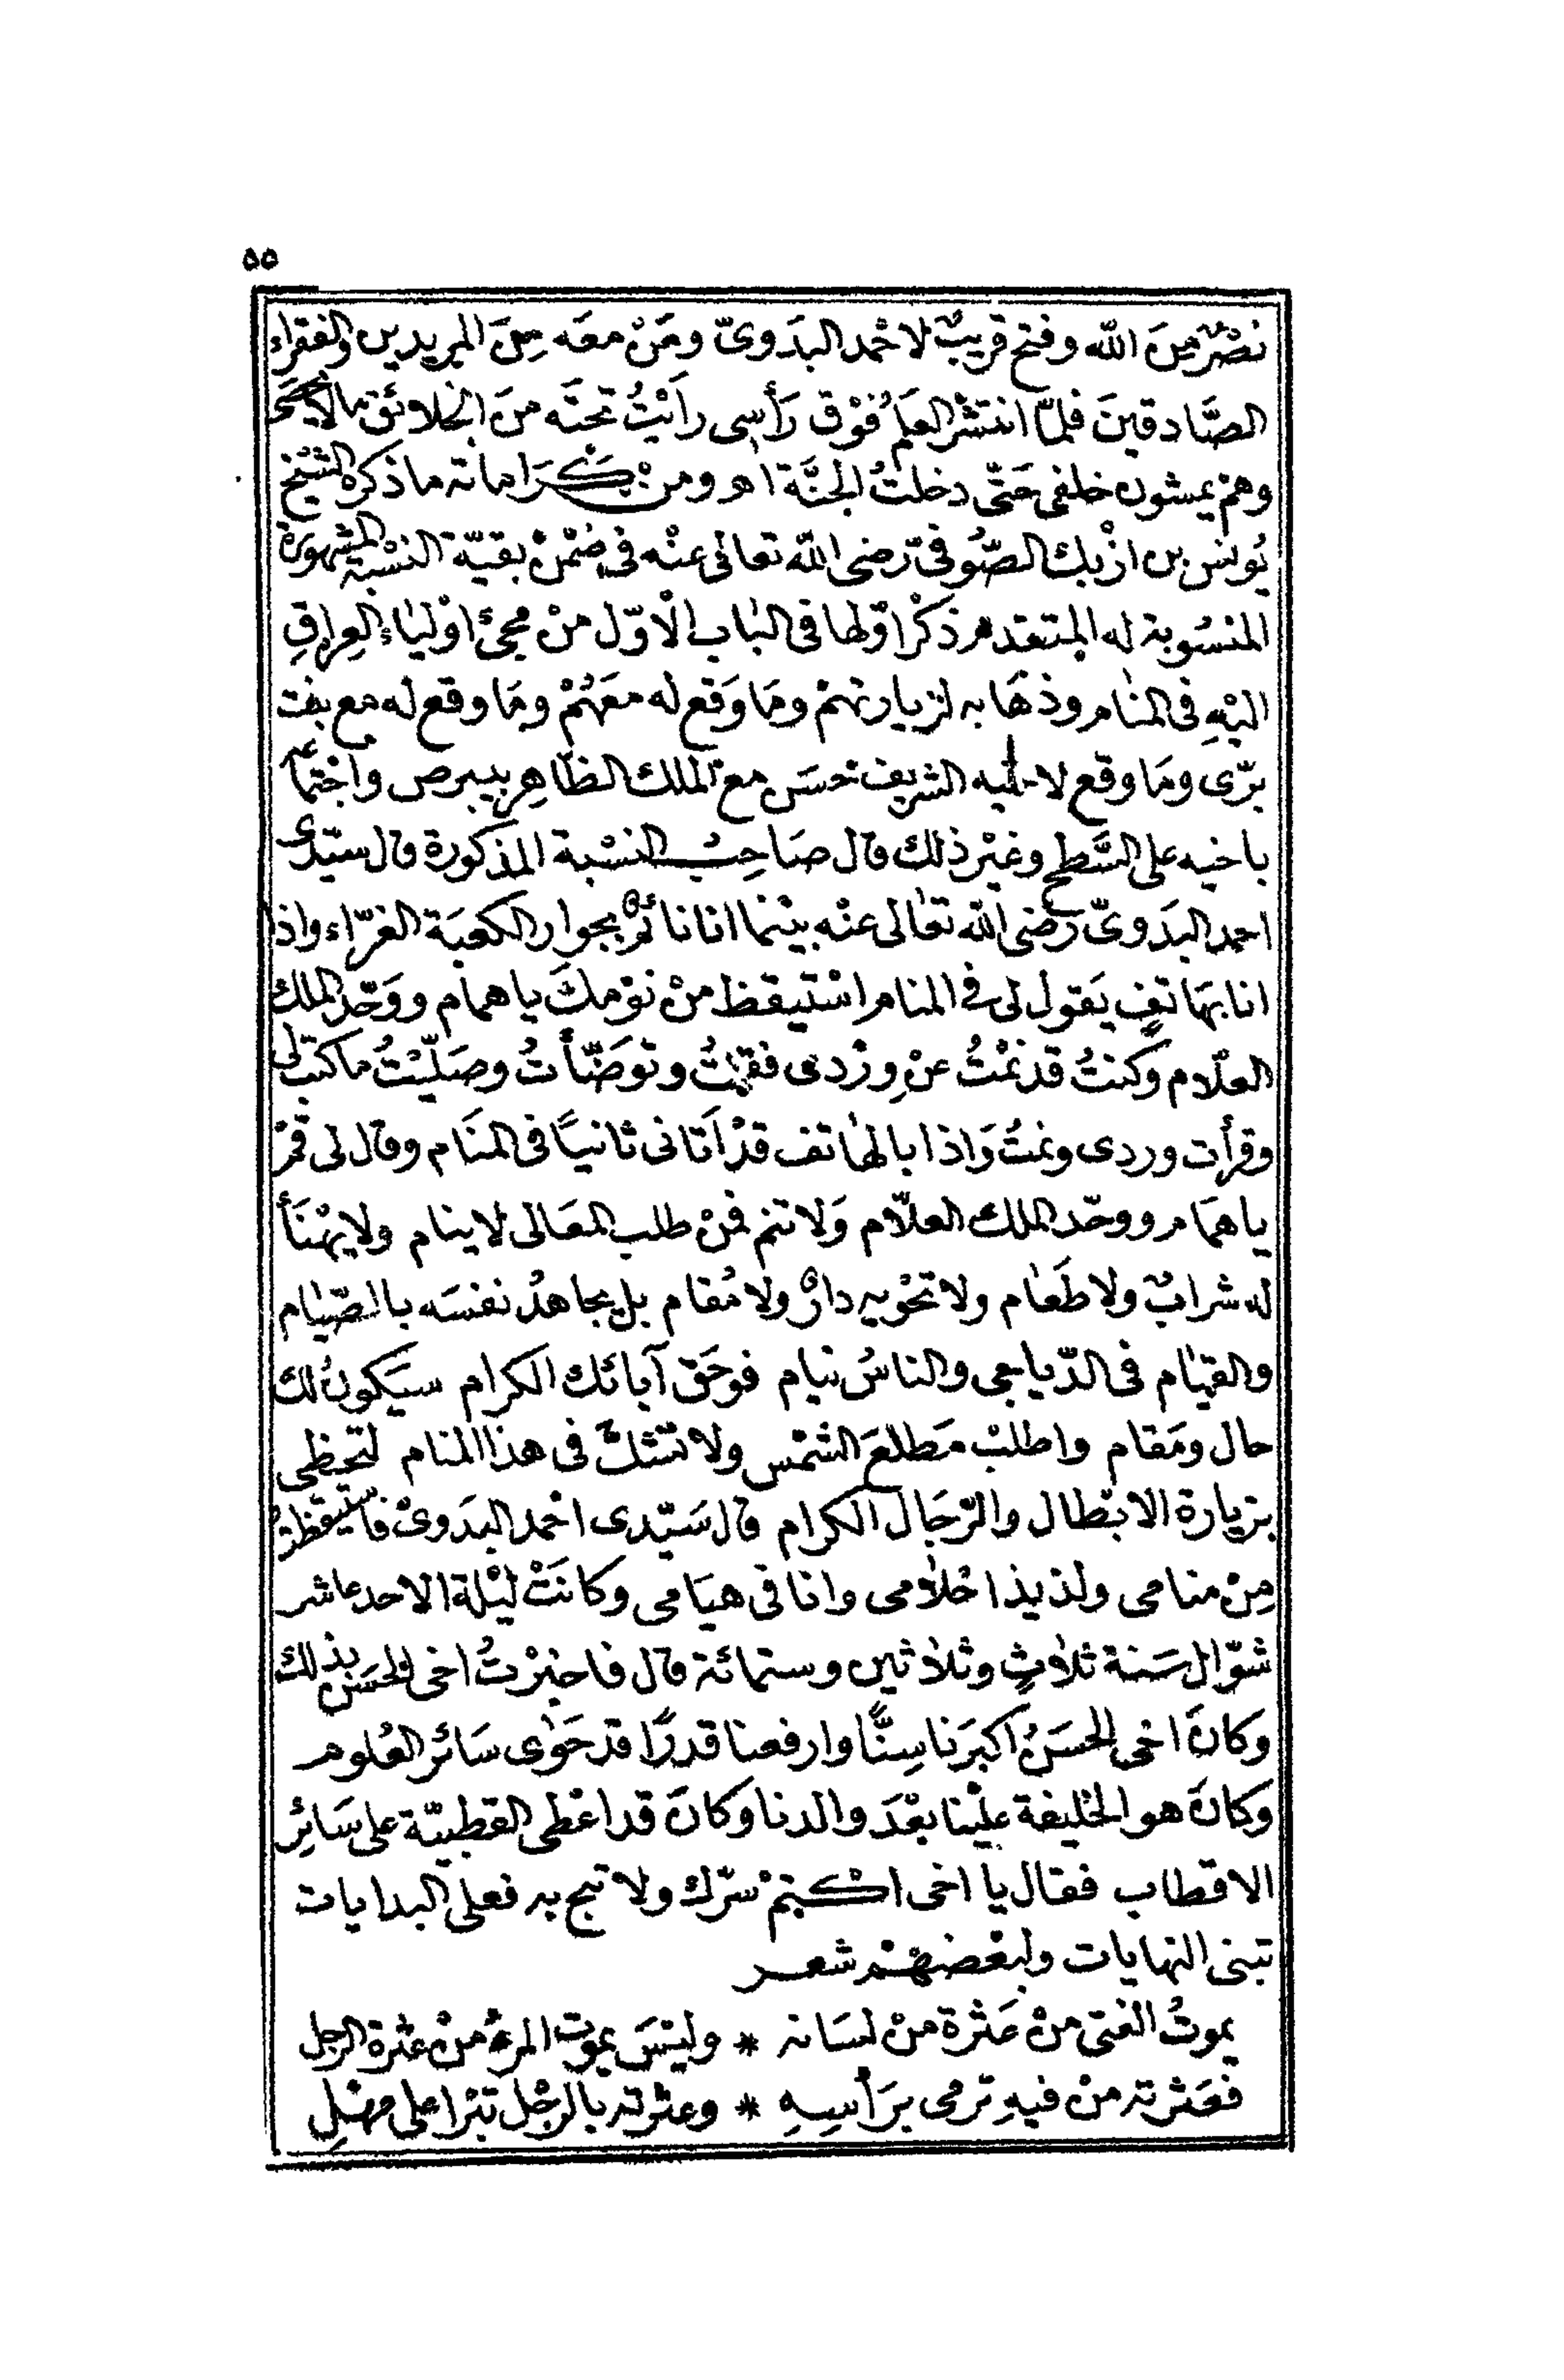 ٥٥
نصْرٌ مِنَ الله وفتح قريبٌ لاحْمد البدَوىّ ومَنْ معَه مِنَ المريدين والفقراء
الصَّادقينَ فلمّا انتشر العَلَمُ فوْق رَأسِى رأيْتُ تحتَه منَ الخلائق مالا يحصَى
وهمْ يمشون خلفى حَتّى دخلتُ الجنَّة اهـ ومنْ كَرَاماته ما ذكره الشيْخ
يُونس بن ازْبك الصُّوفىّ رضى الله تعالى عنْه فى ضمْنْ بقيّة النسْبة المشهورة
المنسُوبة له المتقدم ذكْر اوّلها فى البَاب الْاوّل منْ مجئ اوْليَاء العِراقِ
اليْهِ فى المنَام وذهَابه لزيارتهمْ ومَا وَقع له معَهُمْ ومَا وقع له مع بنت
برّى ومَا وقع لاخيه الشريف حسَن مع الملك الظاهِر بيبرص واجْتماعه
باخيه على السَّطح وغيْر ذلك قال صَاحِبُ النسْبة المذكورة قال سيّدى
احمد البدَوىّ رَضى الله تعَالى عنْه بيْنما انا نائمٌ بجوار الكعبَة الغرّاء واذا
انا بهَاتفٍ يَقول لى فى المنام اسْتيقظ منْ نوْمكَ يا همام ووَحّد الملك
العلّام وكنتُ قد نمْتُ عنْ وِرْدى فقمْتُ وتوَضّأتُ وصَليّتُ ما كتب لى
وقرأت وردى ونمتُ وَاذا بالهَاتف قدْ اَتانى ثانيًا فى المنَام وقال لى قمْ
يا همَام ووحّد الملك العلّام وَلا تنم فمَنْ طلب المعَالى لا ينام ولا يهْنَأ
له شرابٌ ولا طَعَام ولا تحْويه دارٌ ولا مُقام بل يجاهدُ نفسَه بالصّيَام
والقيَام فى الدّياجى والناسُ نيام فوحَق آبائك الكرام سيَكونُ لك
حال ومَقام واطلبْ مَطلعَ الشمْس ولا تشكّ فى هذا المنام لتحظى
بزيارة الابْطال والرّجَال الكرام قال سَيّدى احْمد البدَوىّ فاستيقظتُ
مِنْ منامى ولذيذ احْلامى وانا فى هيَامى وكانَتْ ليْلة الاحد عاشر
شوّال سَنة ثلاثٍ وثلاثين وستمائة قال فاخبرْتُ اخى الحسَن بذلك
وَكانَ اخى الحسَنُ اكبرَنا سِنًّا وارفعنا قدرًا قد حَوٰى سَائر العُلوم
وكانَ هو الخليفة عليْنا بعْدَ والدنا وكانَ قد اعْطى القطبيّة على سَائِر
الاقطاب فقال يا اخى اكتمْ سرّك ولا تبح به فعلى البدايات
تبنى النهايات ولبعْضهمْ شعر
يموتُ الفتى منْ عَثرة منْ لسَانه * وليْسَ يموت المرءُ منْ عثرة الرجل
فعَثرته منْ فيهِ ترمى برَأسِهِ * وعثرته بالرجْل تبْرا على مهْلِ